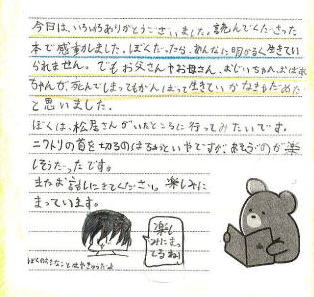 今日は、いろいろありがとうございました。読んでくださった
本で感動しました。ぼくだったら、あんなに明かるく生きてい
られません。でもお父さんやお母さん、おじいちゃん、おばあ
ちゃんが、死んでしまってもがんばって生きていかなきゃだめだ
と思いました。
ぼくは、松居さんがいたところに行ってみたいです。
ニワトリの首を切るのはちょっといやですが、あそぶのが楽
しそうだったです。
またお話しにきてください。楽しみに
まっています。
楽し
みにまっ
てるね!
ぼくの大きなことはやきゅうだよ